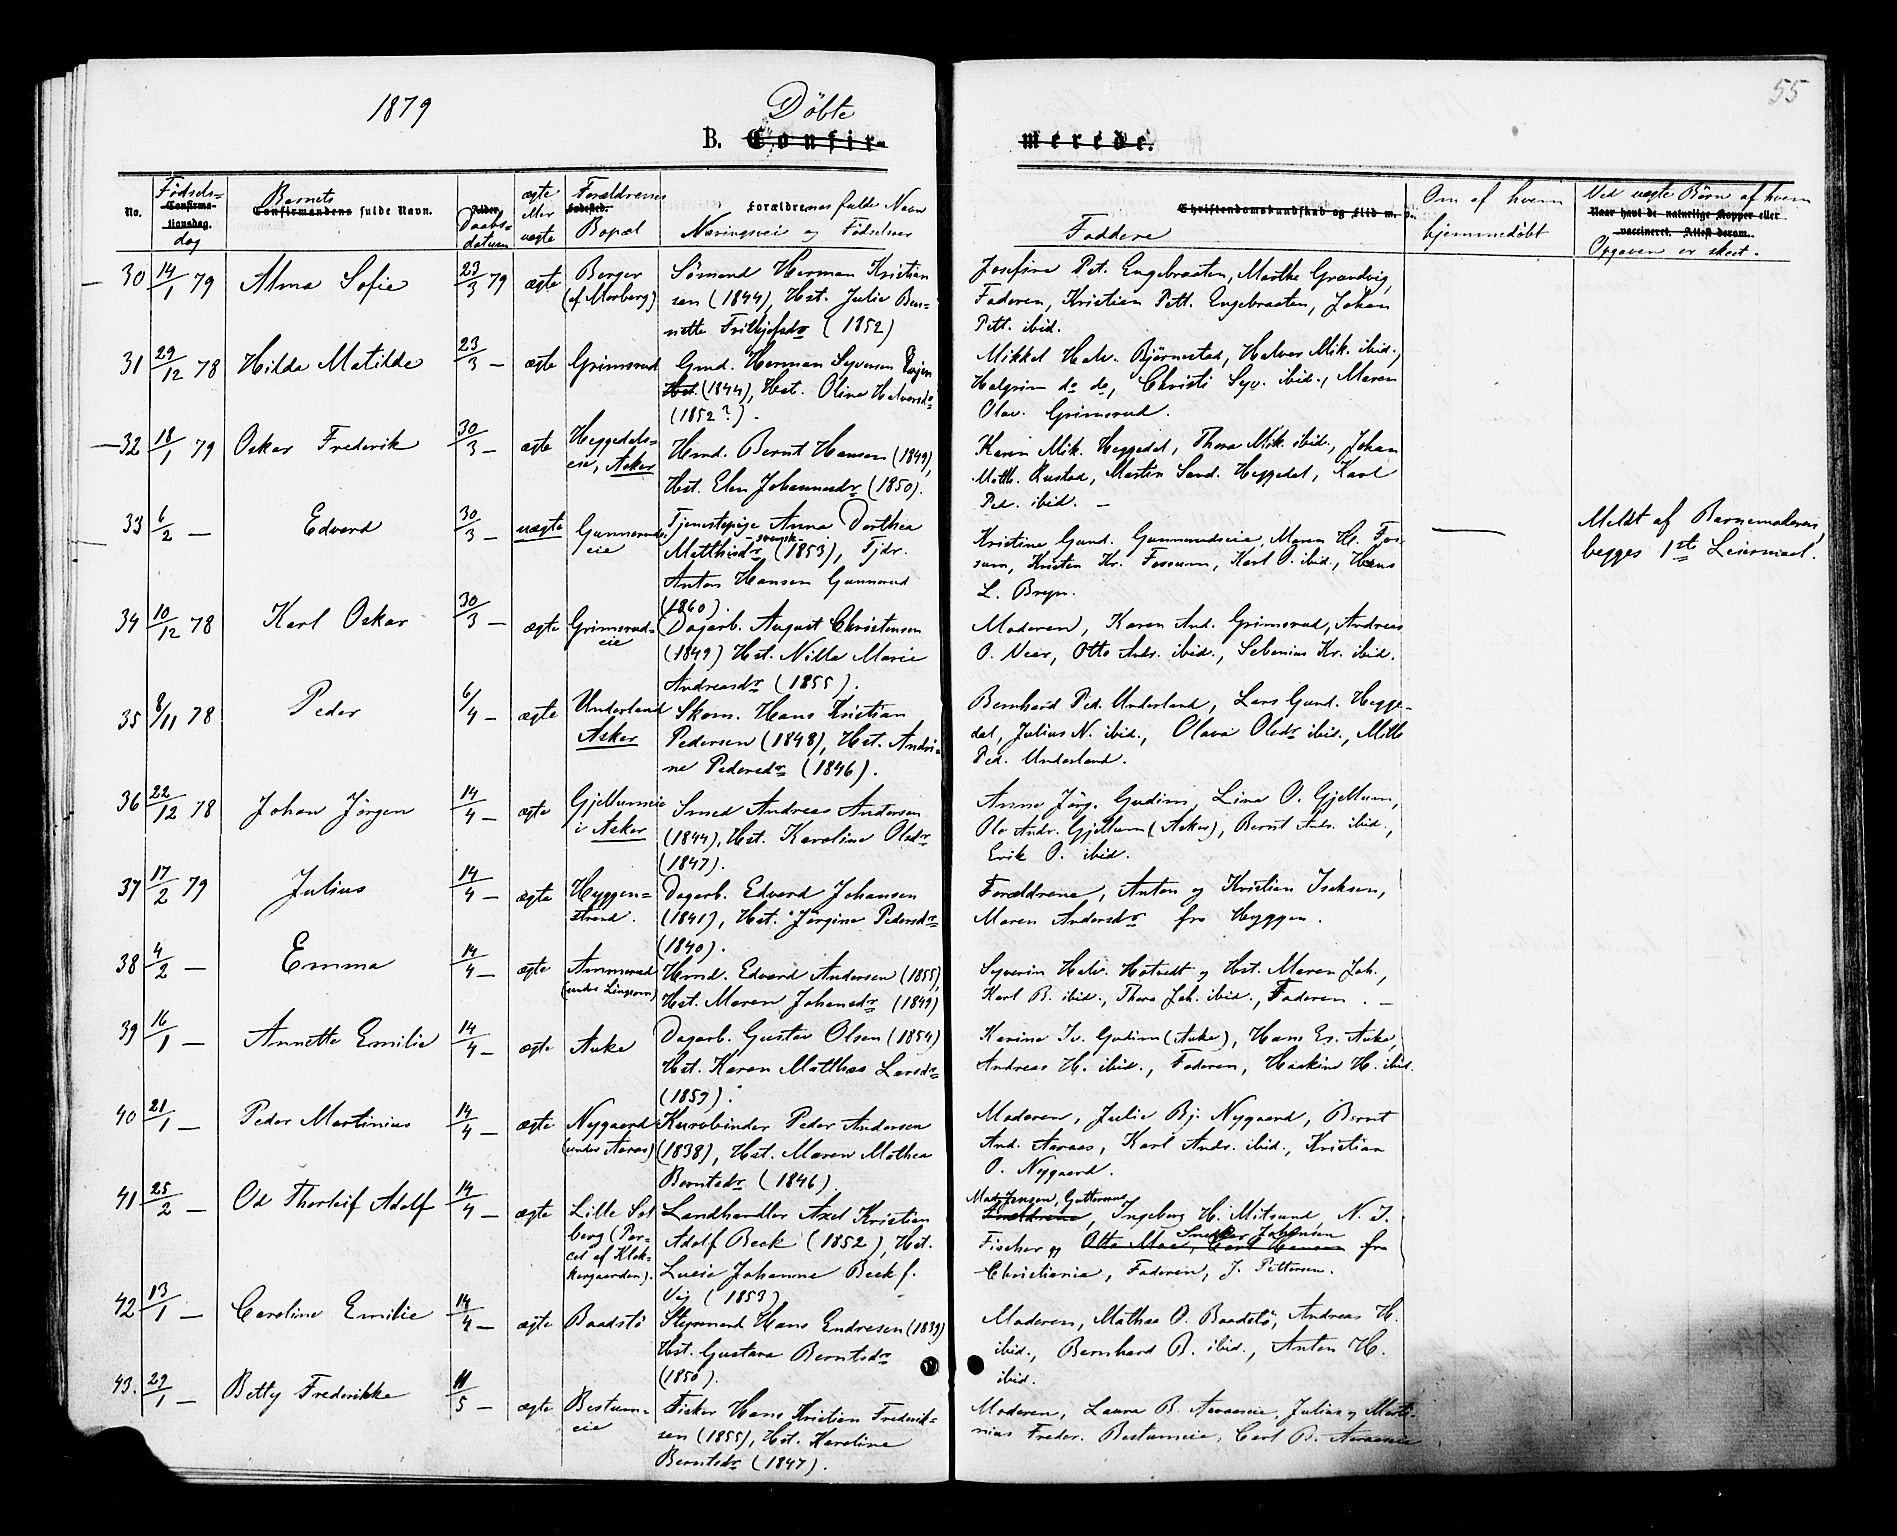 1879
Döbte
55
B. Confir-
merede.
No.
Fødsels-
Confirma-
tionsdag.
dag
Barnets
Confirmandens fulde Navn.
Alder.
Daabs-
datum
ægte
eller
uægte
Forældrenes
Fødested.
Bopæl
Forældrenes fulde Navn
Næringsvei og Fødselsaar
Christendomskundskab og Flid m. v.
Faddere
Om af hvem
hjemmedøbt
Ved uægte Børn af hvem
Naar havt de naturlige Kopper eller
vaccineret. Attest derom.
Opgaven er skeet.
30 14/1 79 Alma Sofie 23/3 79 ægte
Berger
(af Morberg)
Sömand Herman Kristian
sen (1844), Hst. Julie Ben-
nette Frithjofsdr (1852)
Josefine Pet. Engebraaten, Marthe Grandvig,
Faderen, Kristian Pett. Engebraaten, Johan
Pett. ibid.
31 29/12 78 Hilda Matilde 23/3 — ægte Grimsrud
Gmd. Herman Syversen
Hst. (1844), Hst. Oline Halvorsdr
(1852?).
Mikkel Halv. Björnestad, Halvor Mik. ibid.,
Halgrim do do, Christi Syv. ibid., Maren
Olav. Grimsrud.
32 18/1 79 Oskar Frederik 30/3 — ægte
Heggedals-
eie, Asker
Hmd. Bernt Hansen (1849),
Hst. Elen Johannesdr (1850).
Karen Mik. Heggedal, Thora Mik. ibid., Johan
Matth. Rustad, Martin Sand. Heggedal, Karl
Ped. ibid. —
33 6/2 — Edvard 30/3 — uægte
Gunnerud-
eie
Tjenestepige Anna Dorthea
- svensk -
Matthisdr (1853), Tjdr.
Anton Hansen Gunnerud
(1860).
Kristine Gund. Gunnerudseie, Maren H. Fos-
sum, Kristen Kr. Fossum, Karl O. ibid., Hans
L. Bryn.
—
Meldt af Barnemoderen,
begges 1ste Leiermaal.
34 10/12 78 Karl Oskar 30/3 — ægte
Grimsrud-
eie
Dagarb. August Christensen
(1849) Hst. Nilla Marie
Andreasdr (1855).
Moderen, Karen And. Grimsrud, Andreas
O. Vear, Otto Andr. ibid., Sebenius Kr. ibid.
35 8/11 78 Peder 6/4 — ægte
Underland
Asker
Skom. Hans Kristian
Pedersen (1848), Hst. Andri-
ne Pedersdr (1846).
Bernhard Ped. Underland, Lars Gund. Hegge-
dal, Julius N. ibid., Olava Olsdr ibid., Mille
Ped. Underland.
36 22/12 78 Johan Jörgen 14/4 — ægte
Gjellumeie
i Asker
Smed Andreas Andersen
(1844), Hst. Karoline Olsdr
(1847).
Anne Jörg. Gudim, Lina O. Gjellum,
Ole Andr. Gjellum (Asker), Bernt Andr. ibid.,
Erik O. ibid.
37 17/2 79 Julius 14/4 — ægte
Hyggen-
strand.
Dagarb. Edvard Johansen
(1841), Hst. Jörgine Pedersdr
(1840).
Forældrene, Anton og Kristian Isaksen,
Maren Andersdr fra Hyggen.
38 4/2 — Emma 14/4 — ægte
Ammerud
Hmd. Edvard Andersen (1855),
Hst. Maren Johansdr (1849)
Syverin Halv. Hotvedt og Hst. Maren Joh.,
Karl B. ibid., Thora Joh. ibid., Faderen. —
39 16/1 — Annette Emilie 14/4 — ægte Auke
Dagarb. Gustav Olsen (1854)
Hst. Karen Mathea Larsdr
(1859).
Karine Iv. Gudim (Auke), Hans Es. Auke,
Andreas H. ibid., Faderen, Haakine H. ibid.
40 21/1 — Peder Martinius 14/4 — ægte
Nygaard
(under Aaraas)
Kurvbinder Peder Andersen
(1838), Hst. Maren Mathea
Berntsdr (1846)
Moderen, Julie Bj. Nygaard, Bernt
And. Aaraas, Karl Andr. ibid., Kristian
O. Nygaard.
41 25/2 — Od Thorleif Adolf 14/4 — ægte
Lille Sol
berg (Par-
cel af Klok-
kergaarden).
Landhandler Axel Kristian
Adolf Beck (1852), Hst.
Lucie Johanne Beck f.
Vig (1853)
Mad. Jensen, Guttormus
Forældrene, Ingeborg H. Mitsund, N. J.
Snedker Johansen
Fischer og Otto Moe, Carl Hansen fra
Christiania, Faderen, J. Pettersen.
42 13/1 — Caroline Emilie 14/4 — ægte Baadstö
Styrmand Hans Endresen (1839)
Hst. Gustava Berntsdr
(1850).
Moderen, Mathea O. Baadstö, Andreas H.
ibid., Bernhard B. ibid., Anton H.
ibid.
43. 29/1 — Betty Frederikke 11/5 — ægte
Bestum-
eie
Fisker Hans Kristian Frederik-
sen (1855), Hst. Karoline
Berntsdr (1847).
Moderen, Laura B. Aaraaseie, Julius og Marti-
nius Freder. Bestumeie, Carl B. Aaraaseie